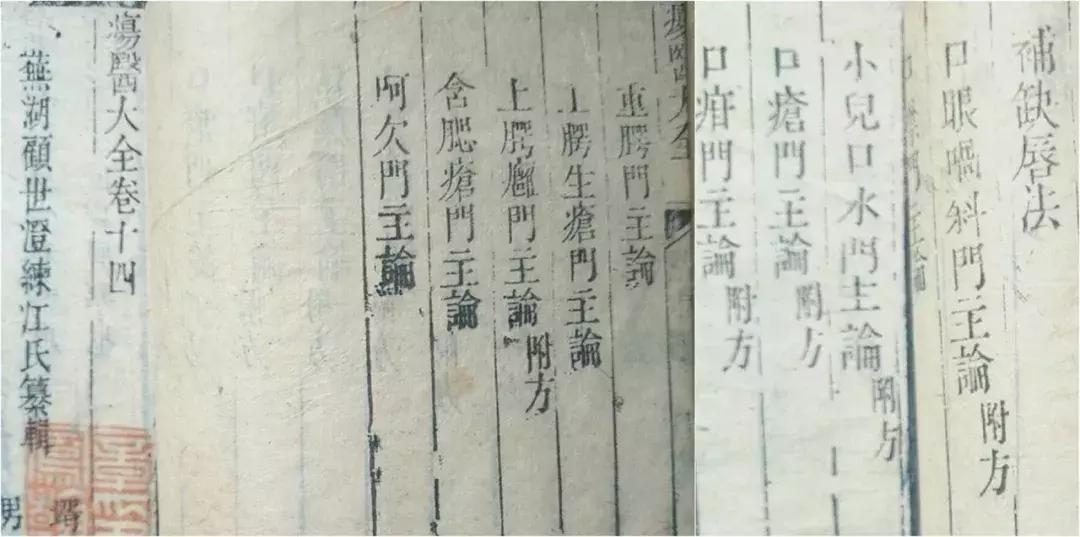 補缺唇法
口眼喎斜門主論附方
小兒口水門主論附方
口瘡門主論附方
口疳門主論附方
瘍醫大全
重腭門主論
上腭生瘡門主論
上腭癰門主論附方
含肥瘡門主論
呵欠門主論
瘍醫大全卷十四
蕪湖顧世澄練江氏纂輯
壻
男